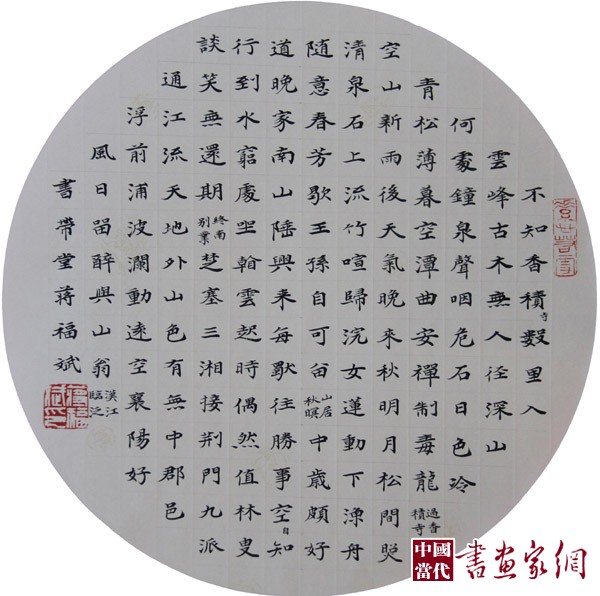 不知香積寺數里入
雲峰古木無人徑深山
何處鐘泉聲咽危石日色冷
青松薄暮空潭曲安禪制毒龍過香積寺
空山新雨後天氣晚來秋明月松間照
清泉石上流竹喧歸浣女蓮動下漁舟
隨意春芳歇王孫自可留山居秋暝中歲頗好
道晚家南山陲興來每獨往勝事空自知
行到水窮處坐看雲起時偶然值林叟
談笑無還期終南别業楚塞三湘接荆門九派
通江流天地外山色有無中郡邑
浮前浦波瀾動遠空襄陽好
風日留醉與山翁漢江臨泛
書帶堂蔣福斌
中國當代書画家網